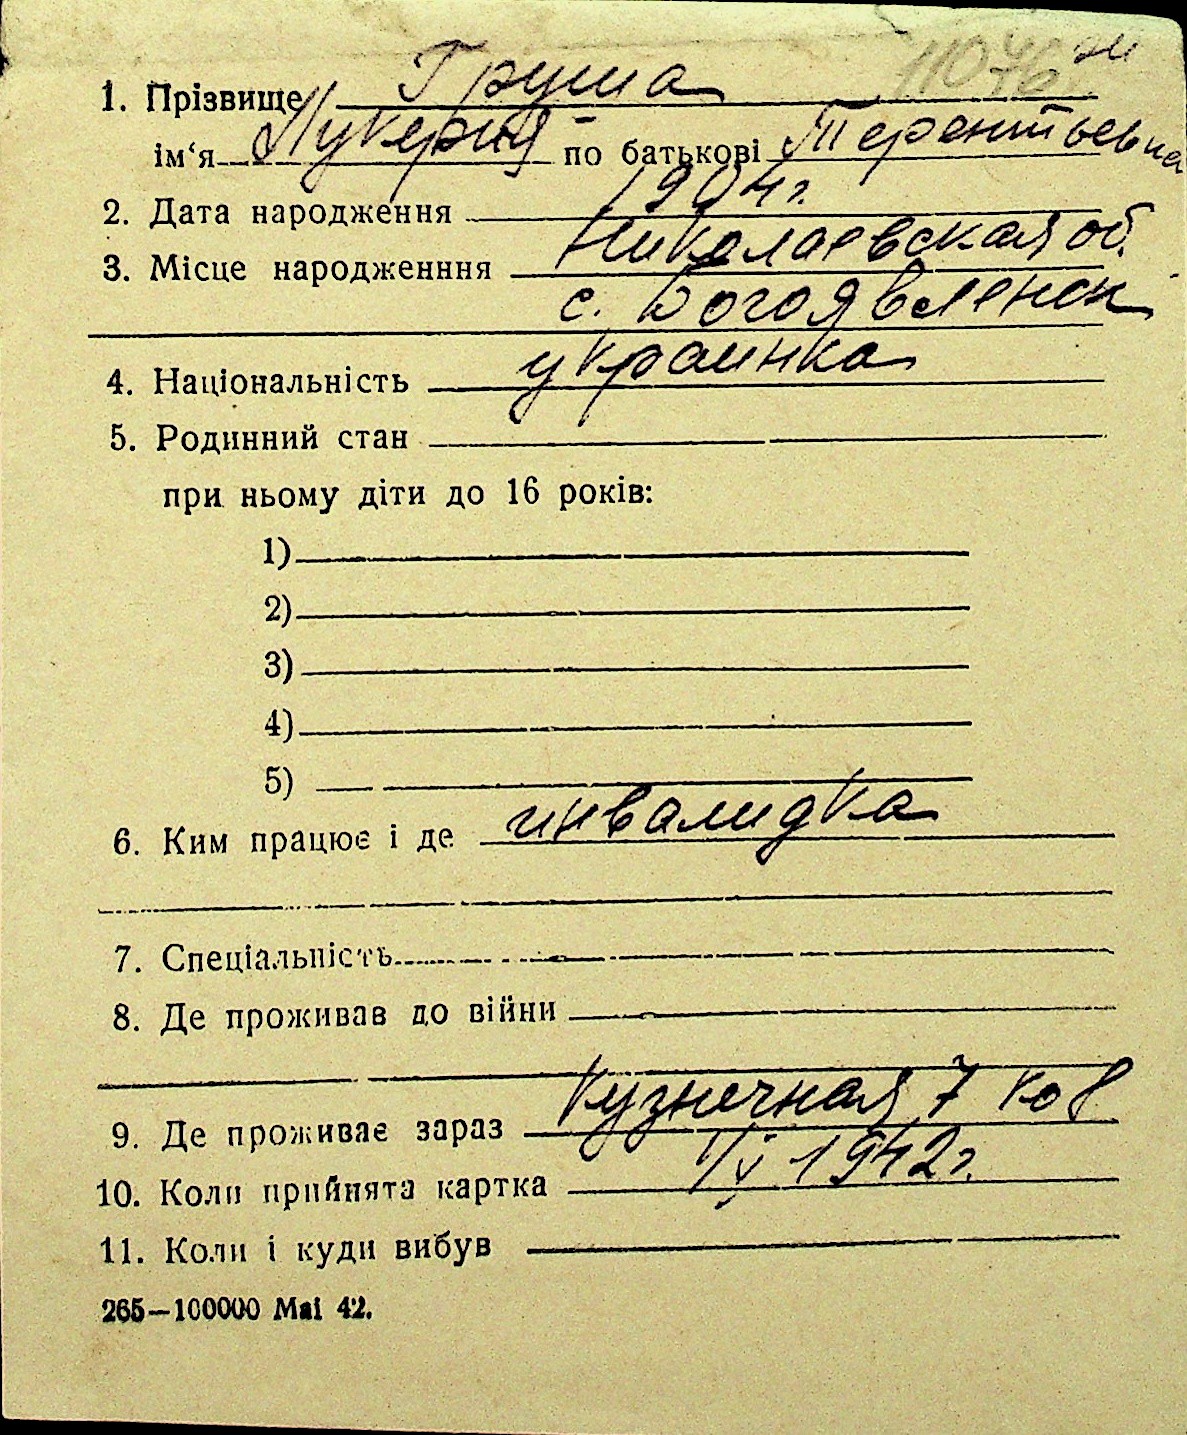 1. Прізвище Груша
ім‘я Лукерия по батькові Терентьевна
2. Дата народження 1904 г.
3. Місце народженння Николаевская об.
с. Богоявленск
4. Національність украинка
5. Родинний стан
при ньому діти до 16 років:
1)
2)
3)
4)
5)
6. Ким працює і де инвалидка
7. Спеціальність
8. Де проживав до війни
9. Де проживає зараз Кузнечная 7 ко 8
10. Коли прийнята картка 1/V 1942 г.
11. Коли і куди вибув
265—100000 Mai 42.